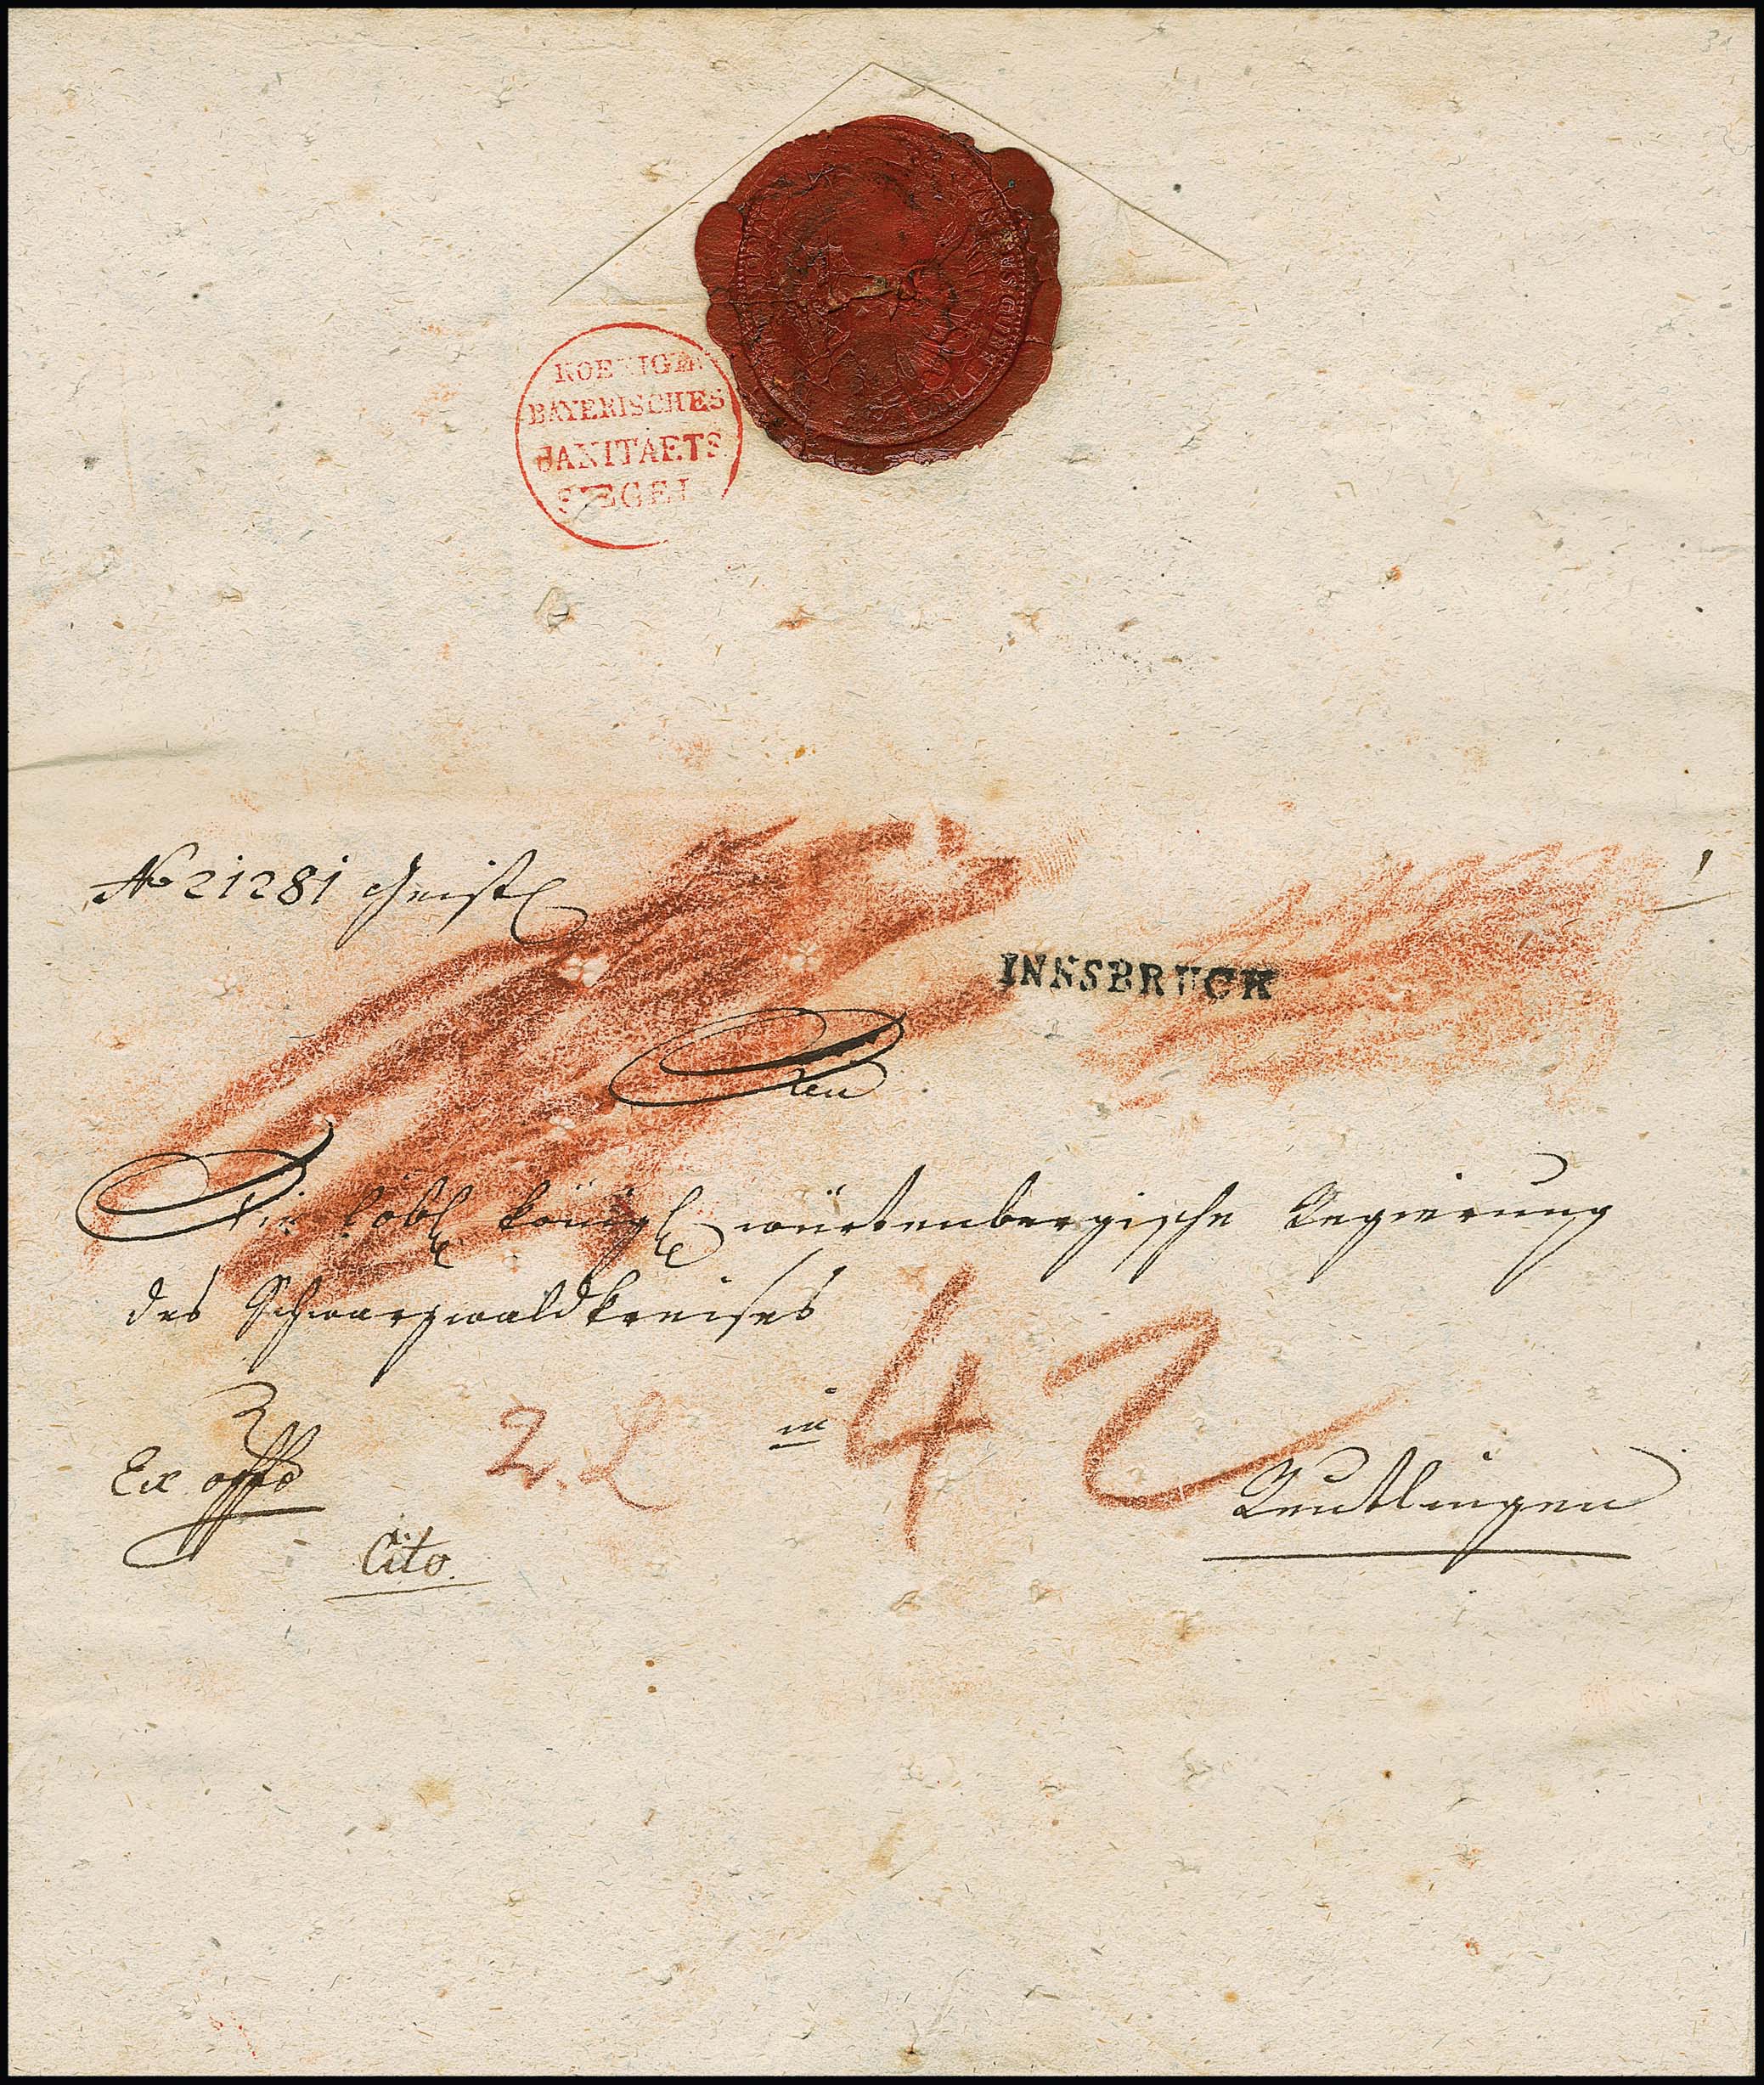 KOENIGL.
BAYERISCHES
SANITAETS
SIEGEL
No 21281 Geistl
INNSBRUCK
An
Die löbl königl würtenbergische Regierung
des Schwarzwaldkreises
42
2. L
in
Ex offo
Reutlingen
Cito.